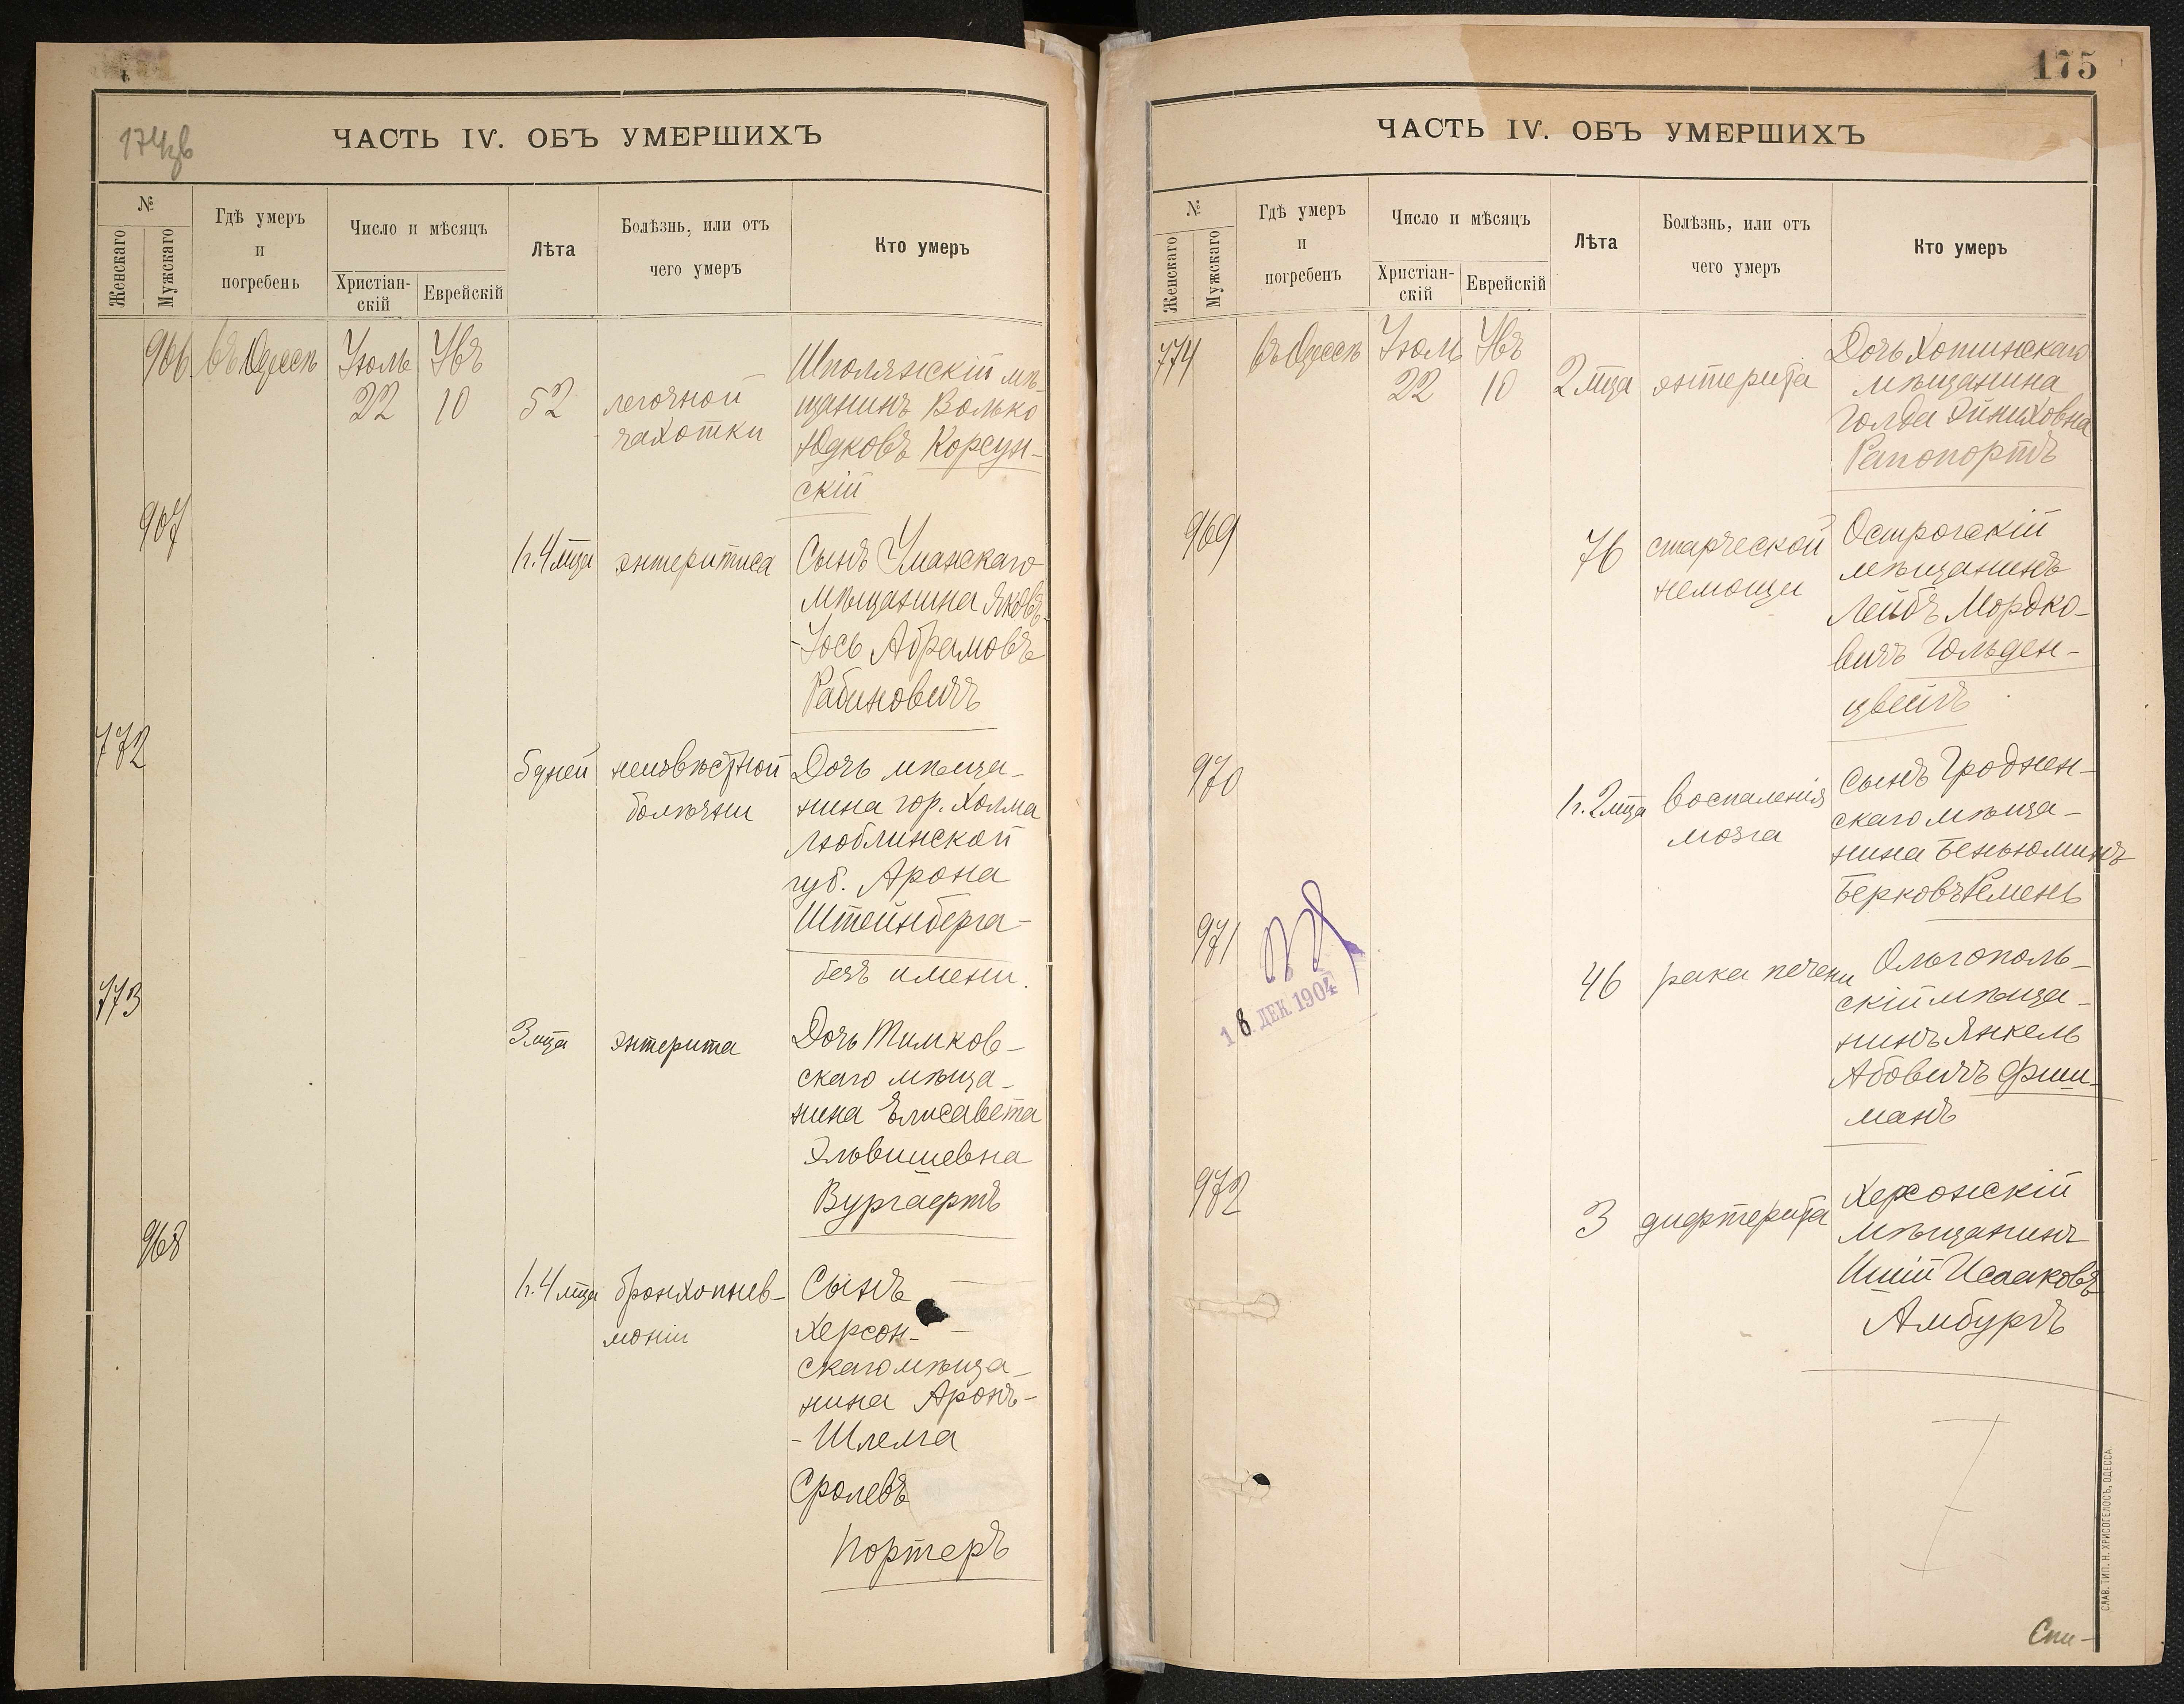 174 зв
ЧАСТЬ IV. ОБЪ УМЕРШИХЪ
№
Женскаго
Мужскаго
Гдѣ умеръ
и
погребенъ
Число и мѣсяцъ
Христіан-
скій
Еврейскій
Лѣта
Болѣзнь, или отъ
чего умеръ
Кто умеръ
966 въ Одессѣ Іюль Увъ
22 10 52 легочной
чахотки
Шполянскій мѣ-
щанинъ Волько
Юдковъ Корсун-
скій
967
1г. 4 мца энтеритиса
Сынъ Уманскаго
мѣщанина Яковъ-
-Іось Абрамовъ
Рабиновичъ
772
5 дней неизвѣстной
болѣзни
Дочь мѣща-
нина гор. Холма
Люблинской
губ. Арона
Штейнберга-
безъ имени.
773
3 мца энтерита
Дочь Тимков-
скаго мѣща-
нина Елисавета
Эльвишевна
Вургафтъ
968
1г. 4 мца бронхопнев-
моніи
Сынъ
Херсон-
скаго мѣща-
нина Аронъ-
-Шлема
Сролевъ
Портеръ
175
ЧАСТЬ IV. ОБЪ УМЕРШИХЪ
№
Женскаго
Мужскаго
Гдѣ умеръ
и
погребенъ
Число и мѣсяцъ
Христіан-
скій
Еврейскій
Лѣта
Болѣзнь, или отъ
чего умеръ
Кто умеръ
774 въ Одессѣ Іюль Увъ
22 10 2 мца энтерита
Дочь Хотинскаго
мѣщанина
Голда Эйниховна
Рапопортъ
969
76 старческой
немощи
Острогскій
мѣщанинъ
Лейбъ Мордко-
вичъ Гольден-
цвейгъ
970
1г. 2 мца воспаленія
мозга
Сынъ Гроднен-
скаго мѣща-
нина Беньюминъ
Берковъ Ремень
971
18 ДЕК 1904
46 рака печени
Ольгополь-
скій мѣща-
нинъ Янкель
Абовичъ Фиш-
манъ
972
3 дифтерита
Херсонскій
мѣщанинъ
Иший Исааковъ
Амбургъ
СЛАВ. ТИП. Н. ХРИСОГЕЛОСЪ, ОДЕССА.